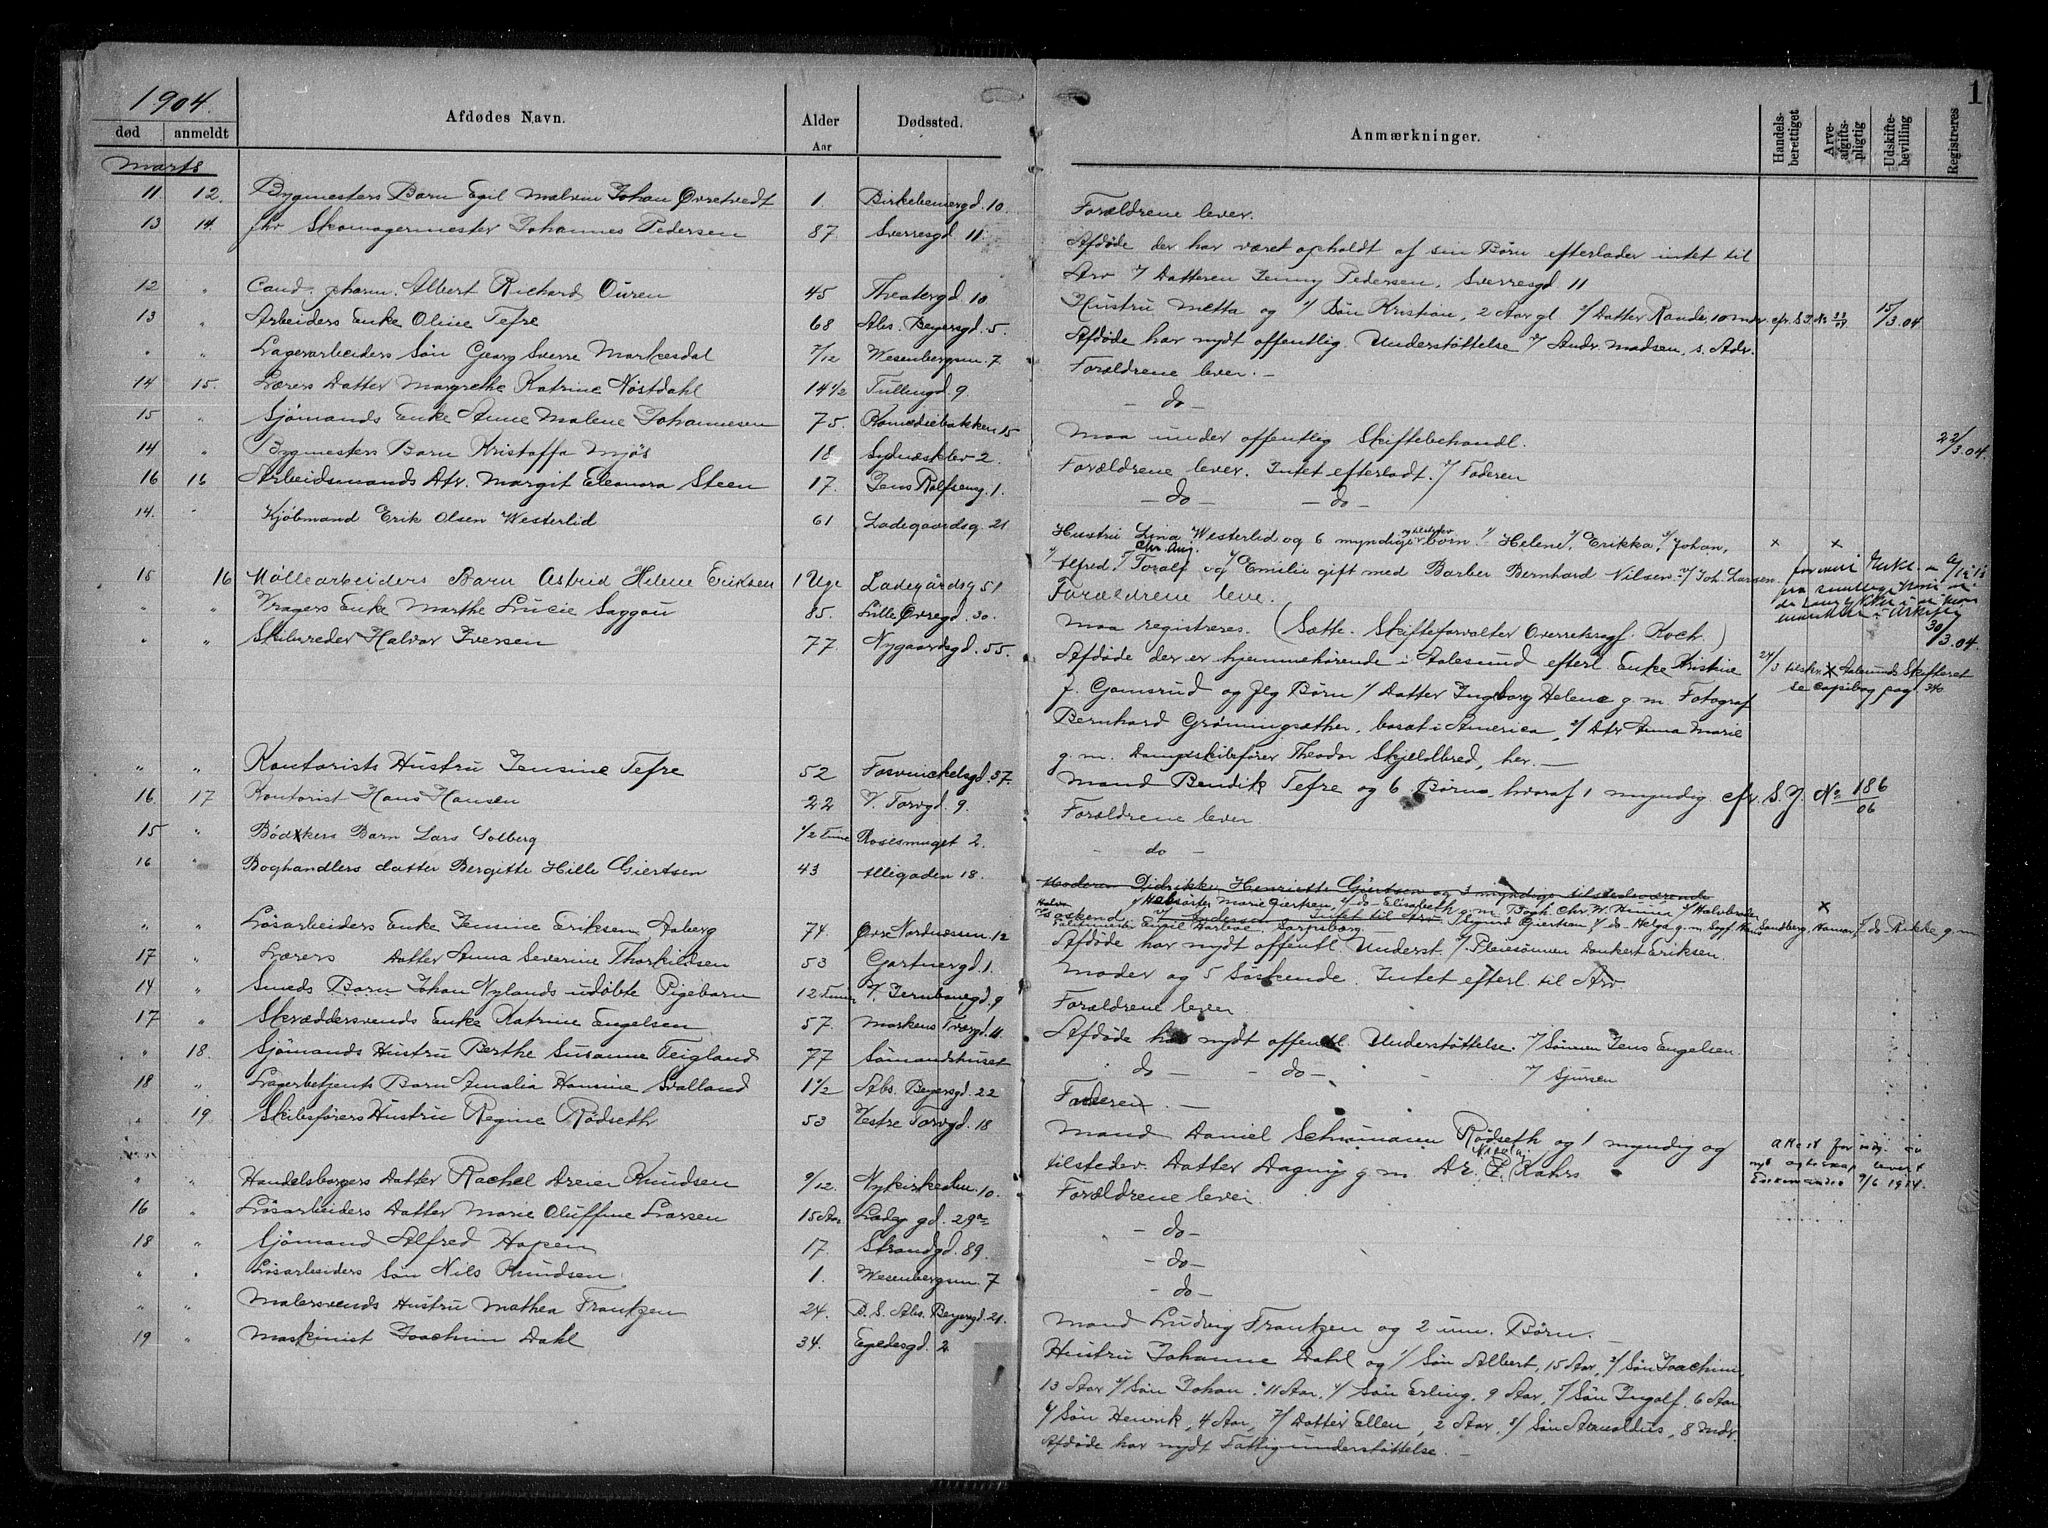 1904.
død anmeldt Afdødes Navn. Alder Aar Dødssted. Anmærkninger. Handels-berettiget Arve-afgifts-pligtig Udskifte-bevilling Registreres 1
Marts
11 12. Bygmesters Barn Egil Malvin Johan Øvretvedt 1 Birkebeinergd. 10. Forældrene lever.
13 14. fhv Skomagermester Johannes Pedersen 87. Sverresgd. 11. Afdøde der har været opholdt af sin Børn efterlader intet til
Arv v/ Datteren Jenny Pedersen, Sverresgd 11
12 " Cand. pharm. Albert Richard Ouren 45 Theatergd. 10. Hustru Metta og 1/ Søn Kristian, 2 Aar gl. 2/ Datter Randi, 10 mdr cfr. S.J. No 15/3.04.
13 " Arbeiders Enke Oline Tefre 68 Abs. Beyersgd. 5. Afdøde har nydt offentlig Understøttelse v/ Andr. Madsen, s. Adr.
" " Lagerarbeiders Søn Georg Sverre Markesdal 7/12 Wesenbergsm. 7 Forældrene lever. -
14 15. Lærers Datter Margrethe Katrine Nøstdahl 14 1/2 Tullingd. 9. - do -
15 " Sjømands Enke Anne Malene Johannesen 75. Komediebakken 15 Maa under offentlig Skiftebehandl. 22/3.04.
14 " Bygmesters Barn Kristoffa Mjøs 18 Sydnæsklev 2. Forældrene lever. Intet efterladt. v/ Faderen
16 16 Arbeidsmands Dtr. Margit Eleonora Steen 17. Jens Rolfseng. 1. - do - - do -
14. " Kjøbmand Erik Olsen Westerlid 61 Ladegaardsg. 21 Hustru Lina Westerlid og 6 myndige og tilstedev børn 1/ Helene, 2/ Erikka, 3/ Johan, x x
Chr. Aug.
4/ Alfred 5/ Toralf og 6/ Emilie gift med Barber Bernhard Nilsen v/ Joh. Larsen.
15 16 Møllearbeiders Barn Astrid Helene Eriksen 1 Uge Ladegårdsg 51 Forældrene leve.
" " Vragers Enke Marthe Lucie Saggau 85. Lille Øvregd. 30. Maa registreres. (Sætte. Skifteforvalter Overretssagf. Koch.) 30/3.04.
" " Skibsreder Halvor Iversen 77 Nygaardsgd. 55. Afdøde der er hjemmehørende i Aalesund efterl. Enke Kristine 24/3 tilskr. x Aalesunds Skifteret
f. Gamsrud og flg Børn 1/ Datter Ingeborg Helene g. m. Fotograf se copibog pag. 340.
Bernhard Grønningsæther, bosat i America, 2/ Dtr Anna Marie
g. m. Dampskibsfører Theodor Skjeldbred, her. -
" " Kontorists Hustru Jensine Tefre 52 Fosvinckelsgd. 37. Mand Bendik Tefre og 6 Børn, hvoraf 1 myndig. cfr. S. J. No 186/06
16 17 Kontorist Hans Hansen 22 V. Torvgd. 9. Forældrene lever
15 " Bødkers Barn Lars Solberg 1/2 Time Rosesmuget 2. - do -
16 " Boghandlers datter Bergitte Hille Giertsen 43 Allégaden 18. Moderen Didrikke Henriette Giertsen og 3 myndige tilstedeværende
Søskend v/ Andersen Intet til Arv. Sandberg, Hamar, x
Faldtmester Engil Harboe, Sarpsborg.
" " Løsarbeiders Enke Jensine Eriksen Aaberg 74. Øvre Nordnæssm. 12 Afdøde har nydt offentl Underst. v/ Pleiesønnen Dankert Eriksen.
17 " Lærers Datter Anna Severine Thorkildsen 53 Gartnergd. 1. Moder og 5 Søskende. Intet efterl. til Arv.
14 " Smeds Barn Johan Nylands udøbte Pigebarn 12 Timer V. Jernbanegd. 9 Forældrene lever.
17 " Skræddersvends Enke Katrine Engelsen 57. Markens Tvergd. 11 Afdøde har nydt offentl. Understøttelse. v/ Sønnen Jens Engelsen.
" 18. Sjømands Hustru Berthe Susanne Teigland 77 Sømandshuset - do - - do - v/ Sjursen
18 " Lagerbetjents Barn Amalia Hansine Svalland 1 1/2 Abs. Beyersgd. 22 Faderen. -
" 19. Skibsførers Hustru Regine Rødseth 53 Vestre Torvgd. 18 Mand Daniel Schumann Rødseth og 1 myndig og
tilstedev. Datter Dagny g. m. Dr. Nicolai Kahrs 9/6 1914.
" " Handelsborgers Datter Rachel Dreier Knudsen 9/12 Nykirkealm. 10. Forældrene lever.
16 " Løsarbeiders Datter Marie Oluffine Larsen 15 Aar Ladeg gd. 29a - do -
18 " Sjømand Alfred Hopen 17. Strandgd. 89. - do -
" " Løsarbeiders Søn Nils Knudsen. 1. Wesenbergsm. 7 - do -
" " Malersvends Hustru Mathea Frantzen 24. B. S. Abs. Beyersgd. 21. Mand Ludvig Frantzen og 2 um. Børn. -
19 " Maskinist Joachim Dahl 34. Egedesgd. 2 Hustru Johanne Dahl og 1/ Søn Albert, 15 Aar, 2/ Søn Joachim,
13 Aar 3/ Søn Johan. 11 Aar, 4/ Søn Erling, 9 Aar, 5/ Søn Ingolf, 6 Aar
6/ Søn Henrik, 4 Aar, 7/ Datter Ellen, 2 Aar, 8/ Søn Arnoldus, 8 Mdr.
Afdøde har nydt Fattigunderstøttelse. -